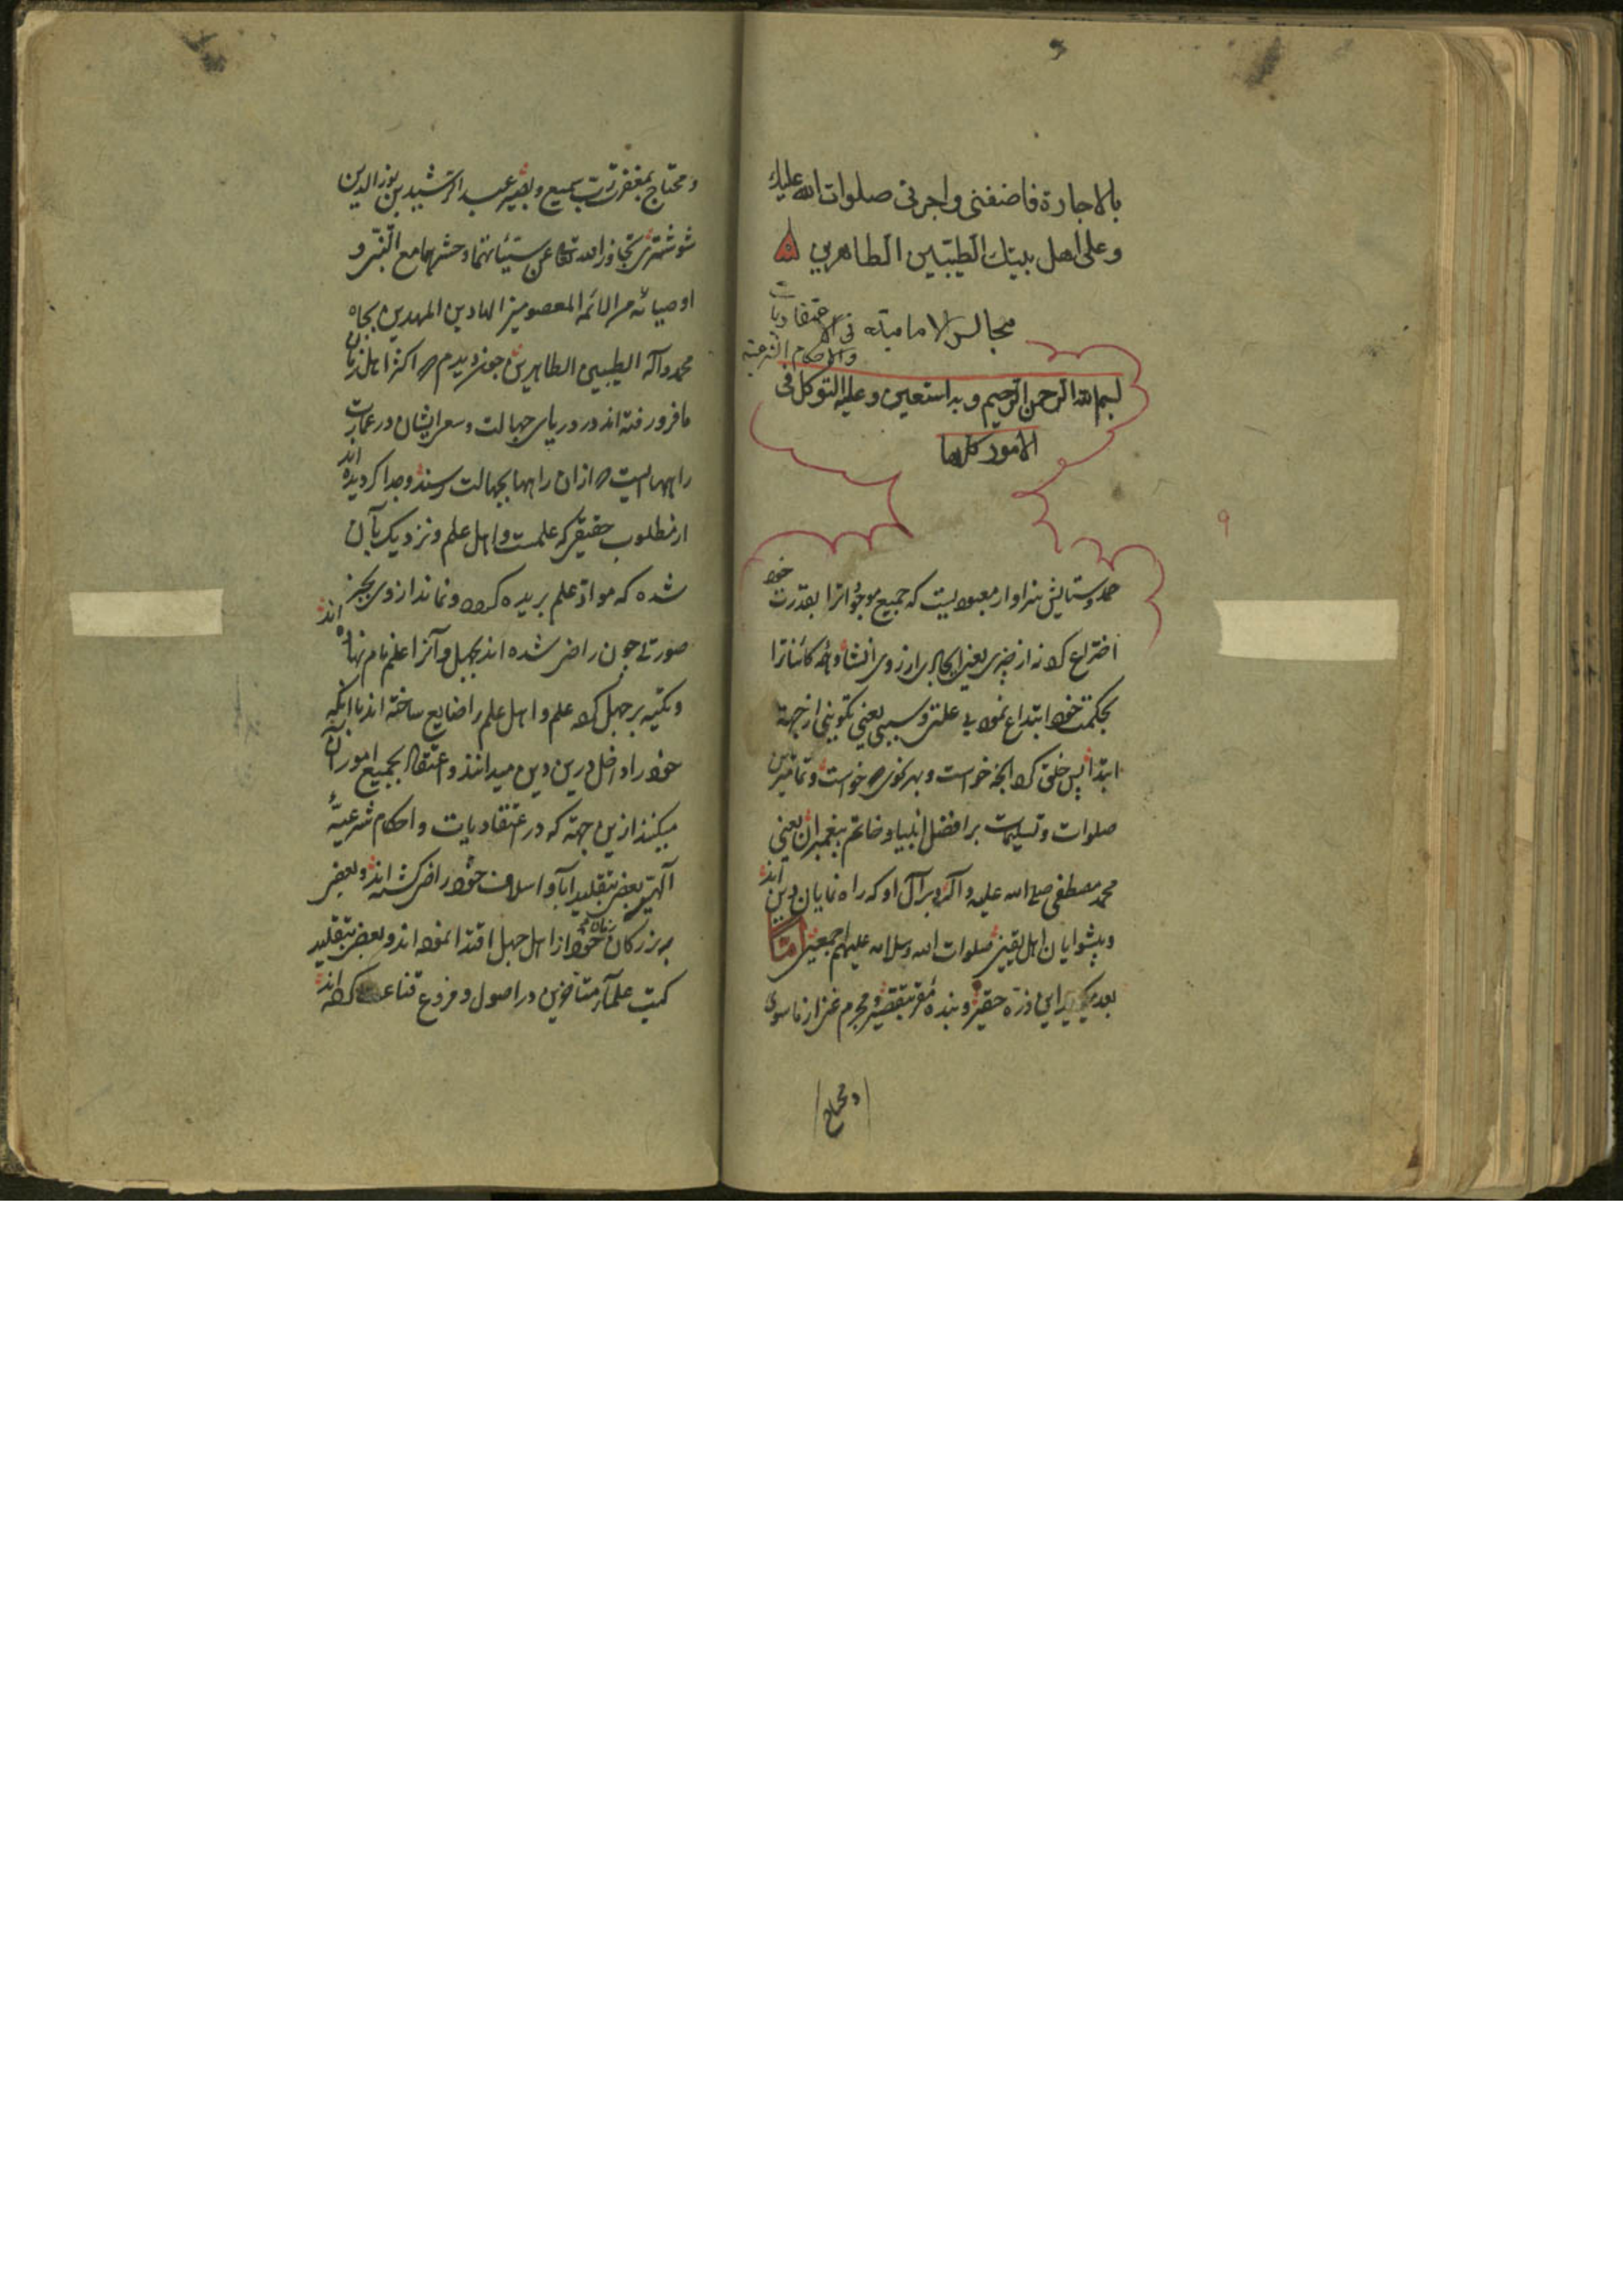 بالاجارة فاضفنی واجرنی صلوات الله علیك
وعلی اهل بیتك الطیبین الطاهرین
مجالس الامامیة فی الاعتقادیات
والاحکام الشرعیة
بسم الله الرحمن الرحیم و به استعین و علیه التوکل فی
الامور کلها
۹
حمد و ستایش سزاوار معبودیست که جمیع موجوداترا بقدرت خود
اختراع کرد نه از چیزی یعنی ایجاد از روی انشا و همه کائناترا
بحکمت خود ابتداع نمود بی علتی و سببی یعنی تکوینی از جهة
ابتدا پس خلق کرد آنچه خواست و بهر نحوی که خواست و
صلوات و تسلیمات بر افضل انبیا و خاتم پیغمبران یعنی
محمد مصطفی صلی الله علیه و آله و بر آل او که راه نمایان دین اند
و پیشوایان اهل یقین صلوات الله و سلامه علیهم اجمعین اما
بعد میگوید این ذره حقیر و بنده مقر بتقصیر و مجرم
و محتاج
و محتاج بمغفرت رب سمیع و بصیر عبد الرشید بن نور الدین
شوشتری تجاوز الله تعالی عن سیئاتهما و حشرهما مع النبی و
اوصیائه من الائمه المعصومین الهادین المهدیین بجاه
محمد و آله الطیبین الطاهرین چون دیدم که اکثر اهل زمان
ما فرو رفته اند در دریای جهالت و سعی ایشان در عمارت
راههاییست که از ان راهها بجهالت رسند و جدا گردیده اند
از مطلوب حقیقی که علمست و اهل علم و نزدیک بآن
شده که مواد علم بریده گردد و نماند از وی بجز
صورتی چون راضی شده اند بجهل و آنرا علم نام نهاده اند
و تکیه بر جهل کرده علم و اهل علم را ضایع ساخته اند با آنکه
خود را داخل درین دین میدانند و اعتقاد بجمیع امور آن
میکنند ازین جهة که در اعتقادیات و احکام شرعیهٔ
الهی بعضی بتقلید آبا و اسلاف خود راضی گشته اند و بعضی
به بزرگان زمان خود از اهل جهل اقتدا نموده اند و بعضی بتقلید
کمیت علماء متاخرین در اصول و فروع قناعت کرده اند